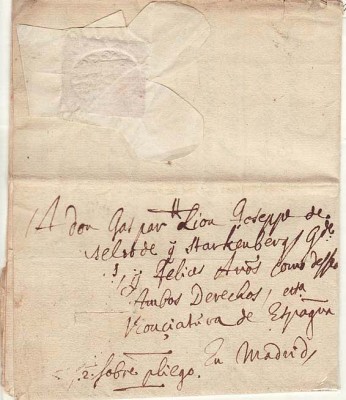 A don Gaspar Lion Giseppe de
y Starkenberg, Gde
y Felices Años como desseo
Ambos Derechos, en la
Nonçiatura de Espagna
En Madrid,
2. sobre pliego.